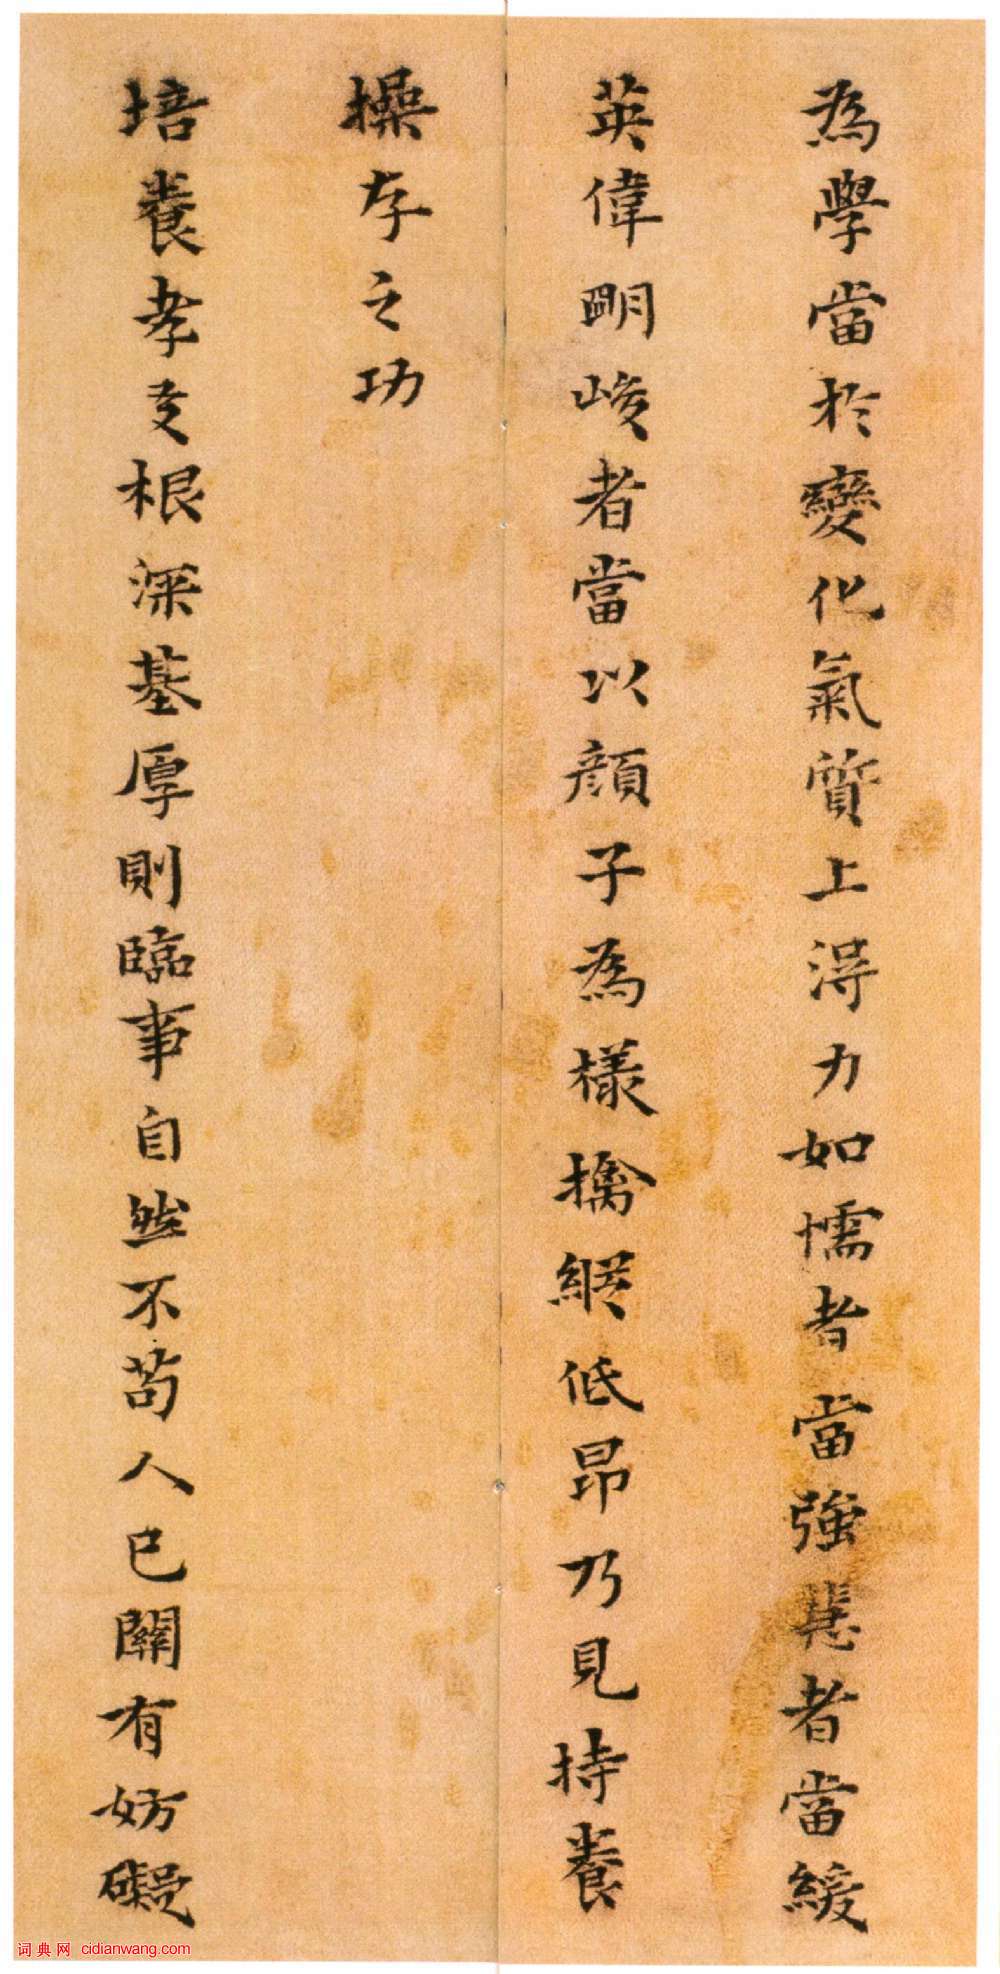 為學當於變化氣質上得力如懦者當強急者當緩
英偉明峻者當以顏子為樣擒縱低昂乃見持養
操存之功
培養孝友根深基厚則臨事自然不苟人己關有妨礙
词典网 cidianwang.com